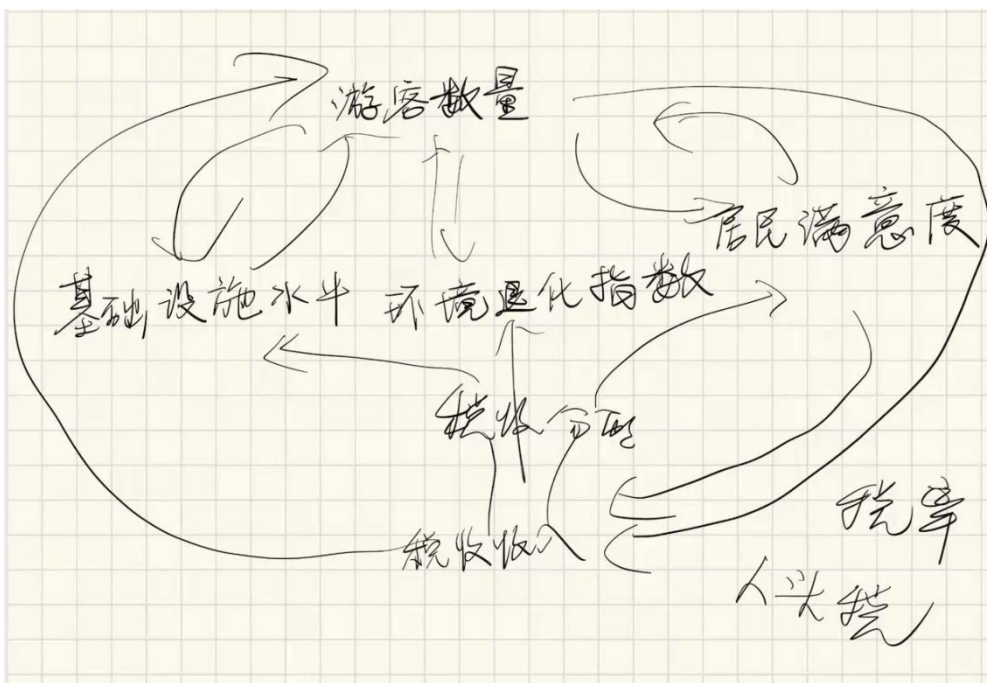 游客数量
居民满意度
基础设施水牛 环境退化指数
税收分配
税收收入
税率
人头税